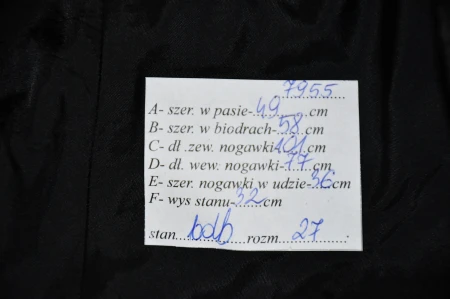 7955
A- szer. w pasie-49 cm
B- szer. w biodrach-58 cm
C- dł .zew. nogawki-101 cm
D- dł. wew. nogawki-77 cm
E- szer. nogawki w udzie-36 cm
F- wys stanu-32 cm
stan bdb rozm. 27